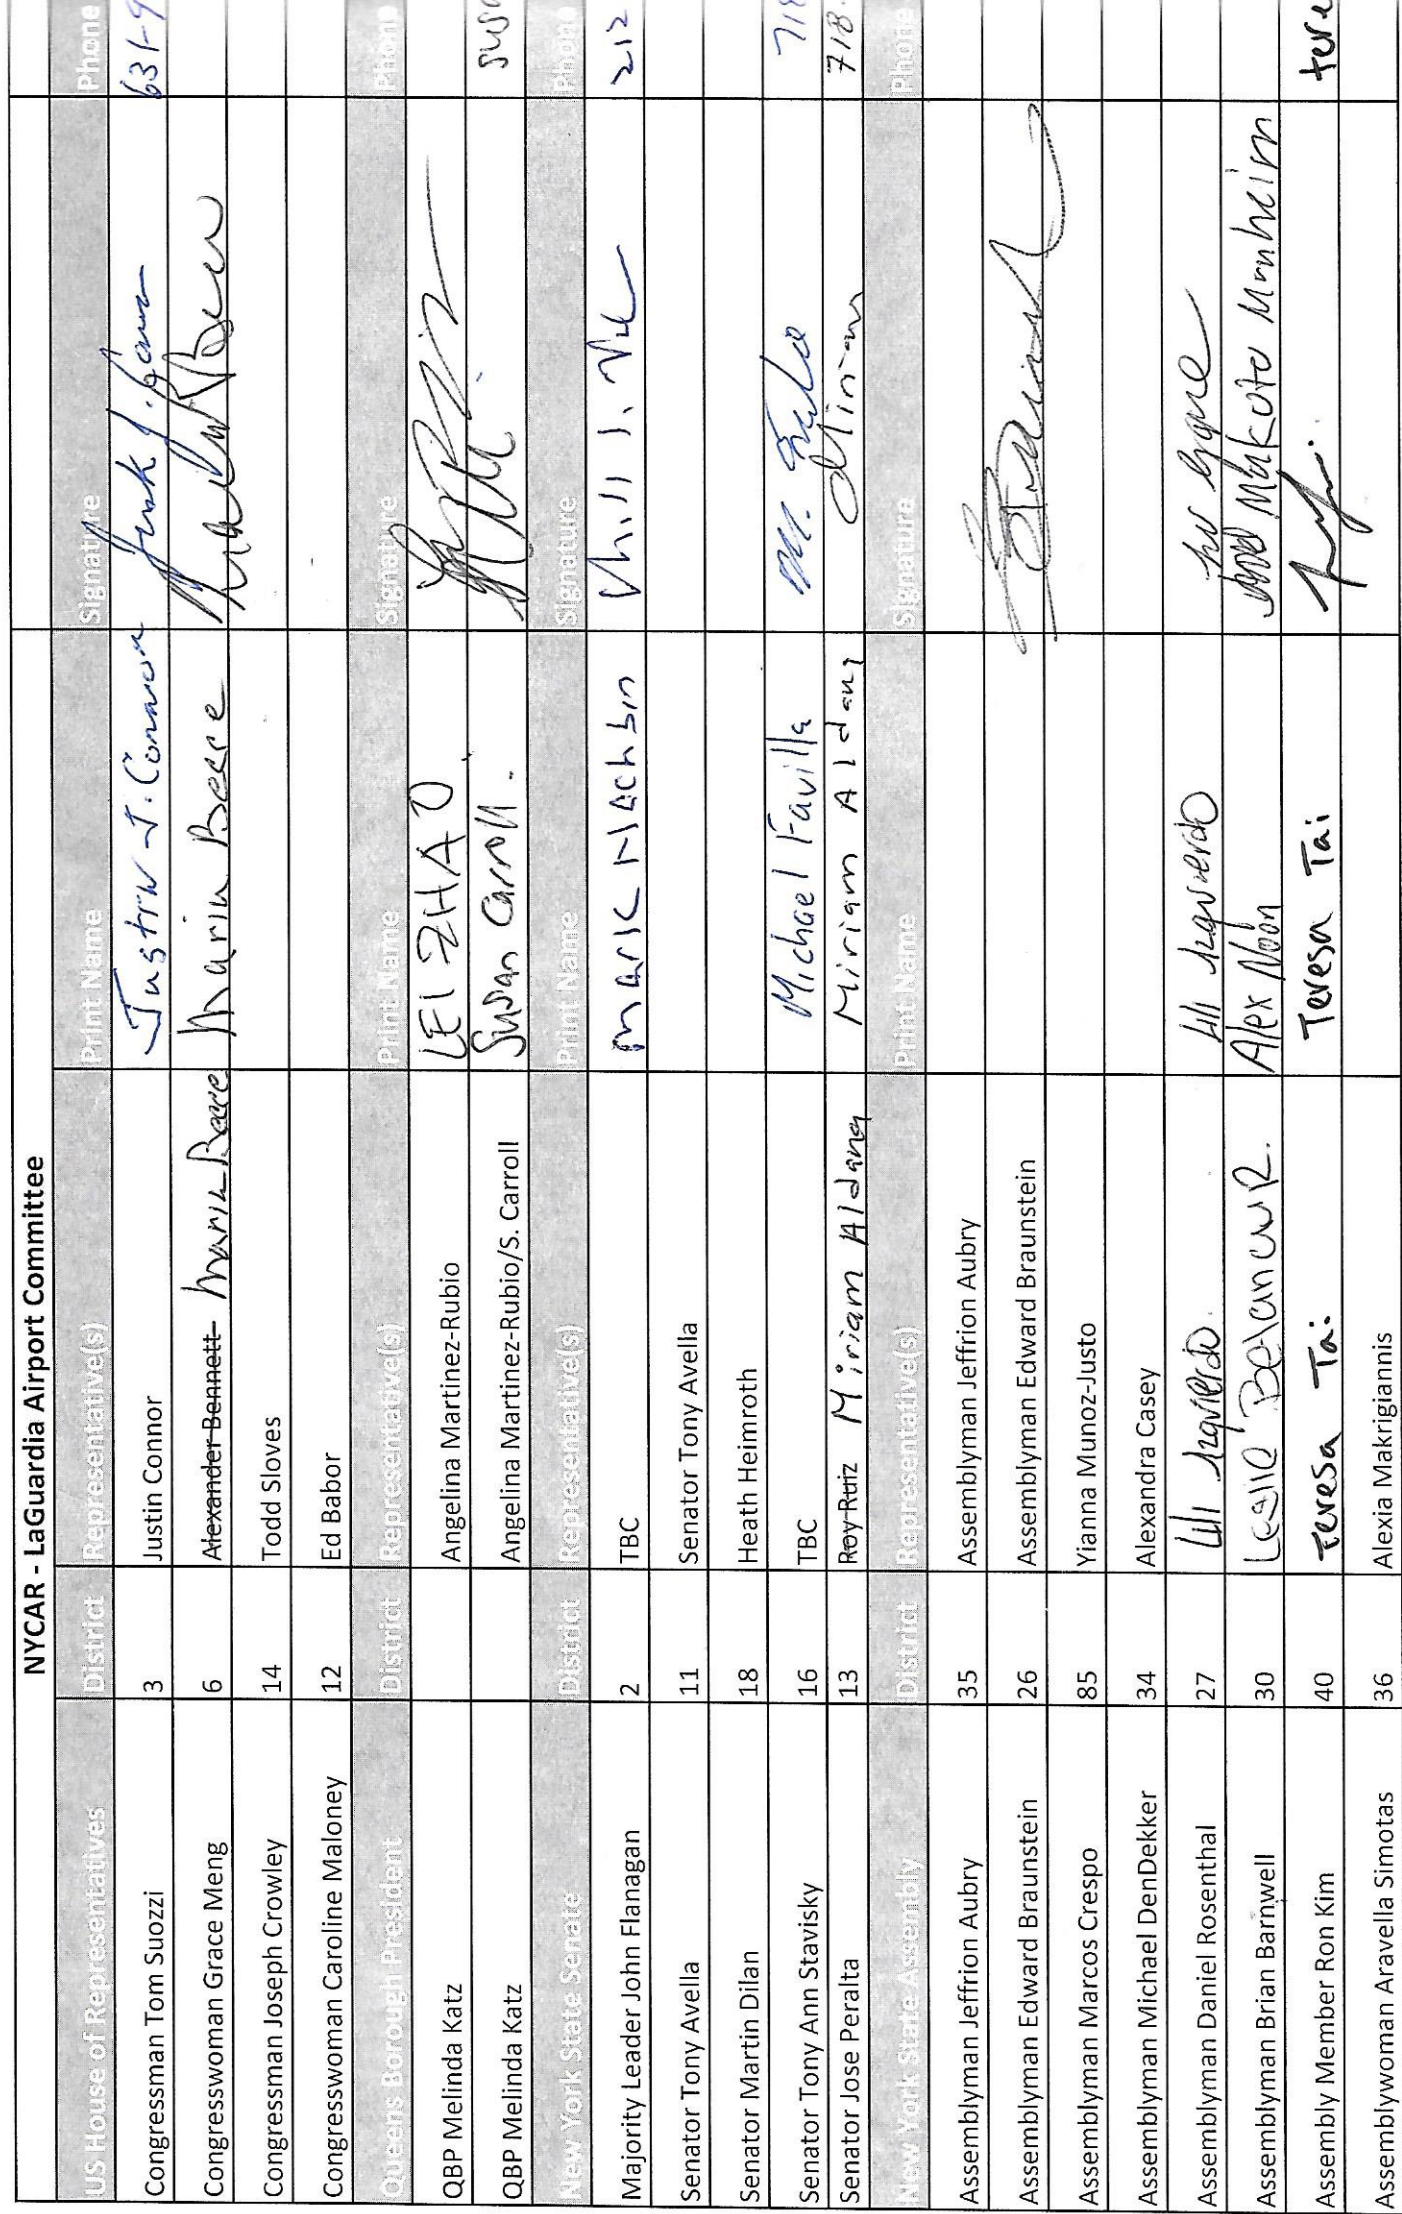 NYCAR - LaGuardia Airport Committee
US House of Representatives District Representative(s) Print Name Signature Phone
Congressman Tom Suozzi 3 Justin Connor Justin J. Connor 631-9
Congresswoman Grace Meng 6 Alexander Bennett Marin Beere Marin Beere
Congressman Joseph Crowley 14 Todd Sloves
Congresswoman Caroline Maloney 12 Ed Babor
Queens Borough President District Representative(s) Print Name Signature Phone
QBP Melinda Katz Angelina Martinez-Rubio LEI ZHAO
QBP Melinda Katz Angelina Martinez-Rubio/S. Carroll Susan Carroll. susa
New York State Senate District Representative(s) Print Name Signature Phone
Majority Leader John Flanagan 2 TBC Mark Nachbin 212
Senator Tony Avella 11 Senator Tony Avella
Senator Martin Dilan 18 Heath Heimroth
Senator Tony Ann Stavisky 16 TBC Michael Favilla 718
Senator Jose Peralta 13 Roy Ruiz Miriam Aldana Miriam Aldana 718-
New York State Assembly District Representative(s) Print Name Signature Phone
Assemblyman Jeffrion Aubry 35 Assemblyman Jeffrion Aubry
Assemblyman Edward Braunstein 26 Assemblyman Edward Braunstein
Assemblyman Marcos Crespo 85 Yianna Munoz-Justo
Assemblyman Michael DenDekker 34 Alexandra Casey
Assemblyman Daniel Rosenthal 27 Lili Izquierdo. Lili Izquierdo
Assemblyman Brian Barnwell 30 Leslie Betancur. Alex Noon Makoto Manheim
Assembly Member Ron Kim 40 Teresa Tai Teresa Tai tere
Assemblywoman Aravella Simotas 36 Alexia Makrigiannis